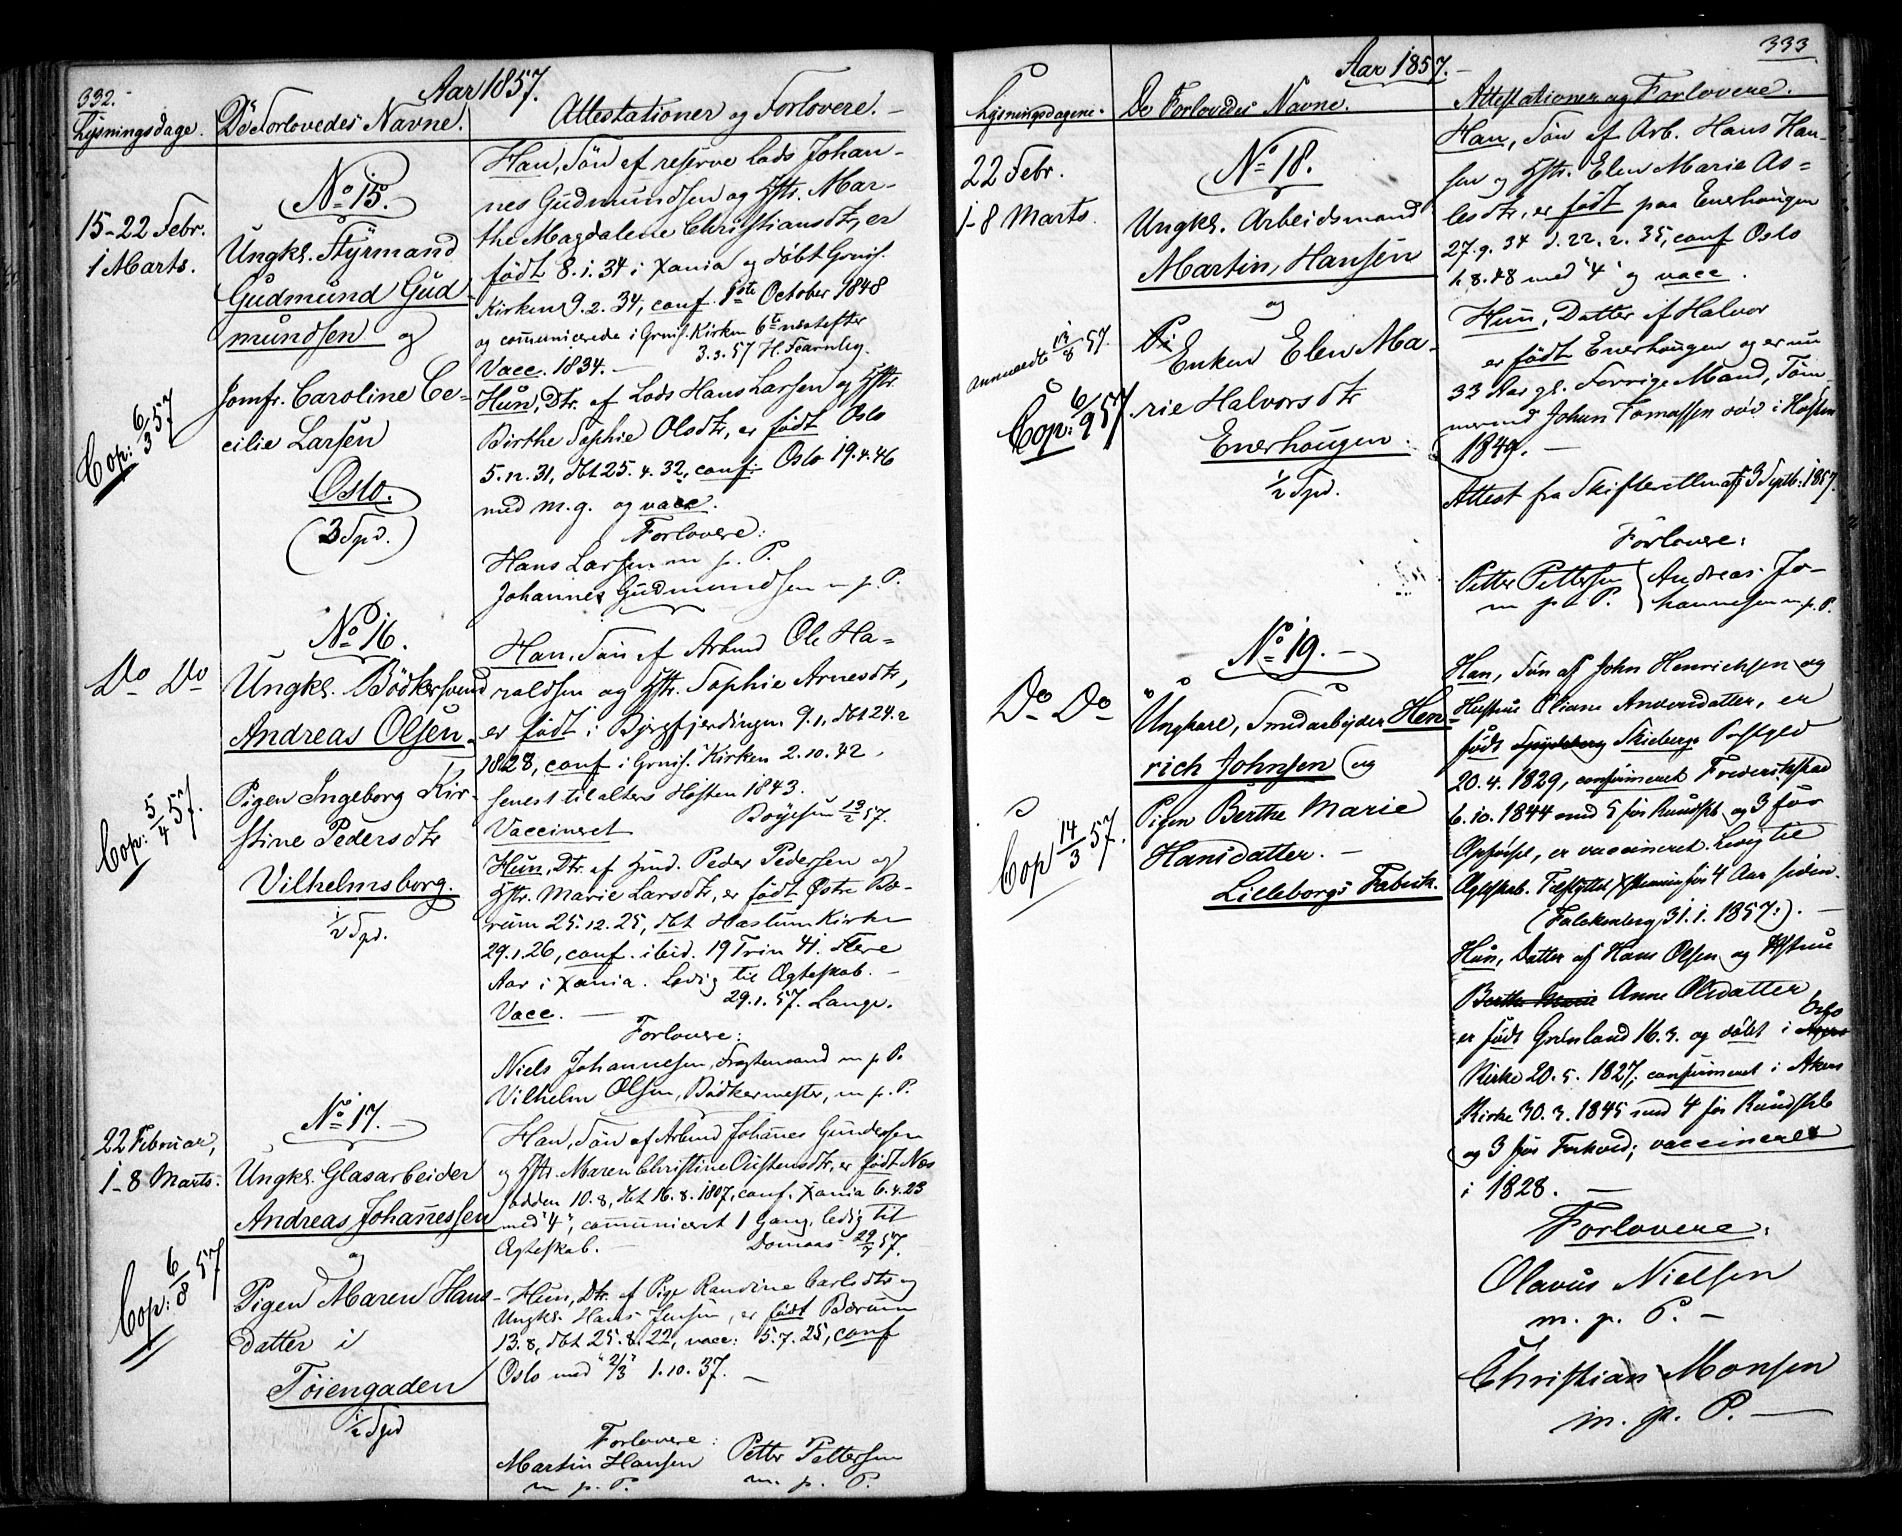 332.
Aar 1857.
Lysningsdage.
De Forlovedes Navne.
Attestationer og Forlovere.
No 15.
15-22 Febr.
1 Marts.
Ungkl. Styrmand
Gudmund Gud
mundsen og
Jomfr. Caroline Ce-
cilie Larsen
Oslo.
(3 Spd.)
Cop: 6/3 57
Han, Søn af reserve lods Johan-
nes Gudmundsen og Hstr. Mar-
the Magdalene Christiansdtr, er
født 8.1.34 i Xania og døbt Gnis.
Kirken 9.2.34, conf. 1ste October 1848
og communicerede i Gnis. Kirken 6te næstefter
3.2.57 H. Fearnley.
Vacc. 1834. —
Hun, Dtr. af Lods Hans Larsen og Hstr.
Birthe Sophie Olsdtr, er født Oslo
5.12.31, dbt 25.4.32, conf: Oslo 19.4.46
med m.g. og vacc.
Forlovere:
Hans Larsen m. p. P.
Johannes Gudmundsen m. p. P.
No 16.
Do Do
Ungkl. Bødkersvend
Andreas Olsen
Pigen Ingeborg Kir-
stine Pedersdtr
Vilhelmsborg.
1/2 Spd.
Cop: 5/4 57.
Han, Søn af Arbmd Ole Ha-
raldsen og Hstr. Sophie Arnesdtr,
er født i Bjergfjerdingen 9.1, dbt 24.2
1828, conf i Gnis. Kirken 2.10.42,
senest til alters Høsten 1843.
Vaccineret Bøyesen 19/2 57.
Hun, Dtr. af Hmd. Peder Pedersen og
Hstr. Marie Larsdtr, er født Østre Bæ-
rum 25.12.25, dbt Haslum Kirke
29.1.26, conf. ibid. 19 Trin 41. Flere
Aar i Xania. Ledig til Ægteskab. —
29.1.57. Lange.
Vacc. —
Forlovere:
Niels Johannesen, Fragtemand m p P.
Vilhelm Olsen, Bødkermester, m. p. P.
No 17. —
22 Februar,
1-8 Marts.
Ungkl. Glasarbeider
Andreas Johannessen
og
Pigen Maren Hans
datter i
Töiengaden
1/2 Spd
Cop: 6/8 57
Han, Søn af Arbmd Johanes Gundersen
og Hstr. Maren Christine Østensdtr, er født Næs
odden 10.8, dbt 16.8.1807, conf. Xania 6.4.23
med "4", communiceret 1 Gang, ledig til
Ægteskab. — Domaas 29/7 57.
Hun, Dtr. af Pige Randine Carlsdtr og
Ungkl. Hans Jensen, er født Bærum
13.8, dbt 25.8.22, vacc: 5.7.25, conf
Oslo med "2/3" 1.10.37. —
Forlovere:
Martin Hansen
m p. P.
Petter Pettersen
m. p. P.
333
Aar 1857. —
Lysningsdagene.
De Forlovedes Navne.
Attestationer og Forlovere.
No 18.
22 Febr.
1-8 Marts.
Ungkl. Arbeidsmand
Martin, Hansen
og
Enken Elen Ma-
rie Halvorsdtr
Enerhougen.
1/2 Spd.
anmeldt 13/8 57.
Cop: 6/9 57
Han, Søn af Arb. Hans Han-
sen og Hstr. Elen Marie As-
lesdtr, er født paa Enerhougen
27.9.34 d. 22.2.35, conf Oslo
h, 8.48 med "4" og vacc.
Hun, Datter af Halvor
er født Enerhougen og er nu
33 Aar gl. Forrige Mand, Töm
mermd Johan Tomassen död i Høsten
1849. —
Attest fra Skifteretten af 3 Septb. 1857.
Forlovere:
Petter Pettersen
m p. P.
Andreas Jo-
hannesen m. p. P.
No 19. —
Do Do
Ungkarl, Smedarbejder Hen-
rich Johnsen og
Pigen Berthe Marie
Hansdatter. —
Lilleborgs Fabrik.
Cop 14/3 57.
Han, Søn af John Henrichsen og
Hustru Oliane Andersdatter, er
føds Spydeberg Skieberge Præstgd
20.4.1829, confirmeret Frederikstad
6.10.1844 med 5 for Kundskb. og 3 for
Opførsl, er vaccineret. Ledig til
Ægteskab. Tilflyttet Xstiania for 4 Aar siden.
(Falckenberg 31.1.1857:). —
Hun, Datter af Hans Olsen og Hstrue
Berthe Marie Anne Olsdatter
er føds Grønland 16.3. og døbt i Agers Oslo
Kirke 20.5.1827; confirmeret i Akers
Kirke 30.3.1845 med 4 for Kundskb
og 3 for Forhold; vaccineret
i 1828. —
Forlovere:
Olavus Nielsen
m. p. P. —
Christian Monsen
m. p. P. —